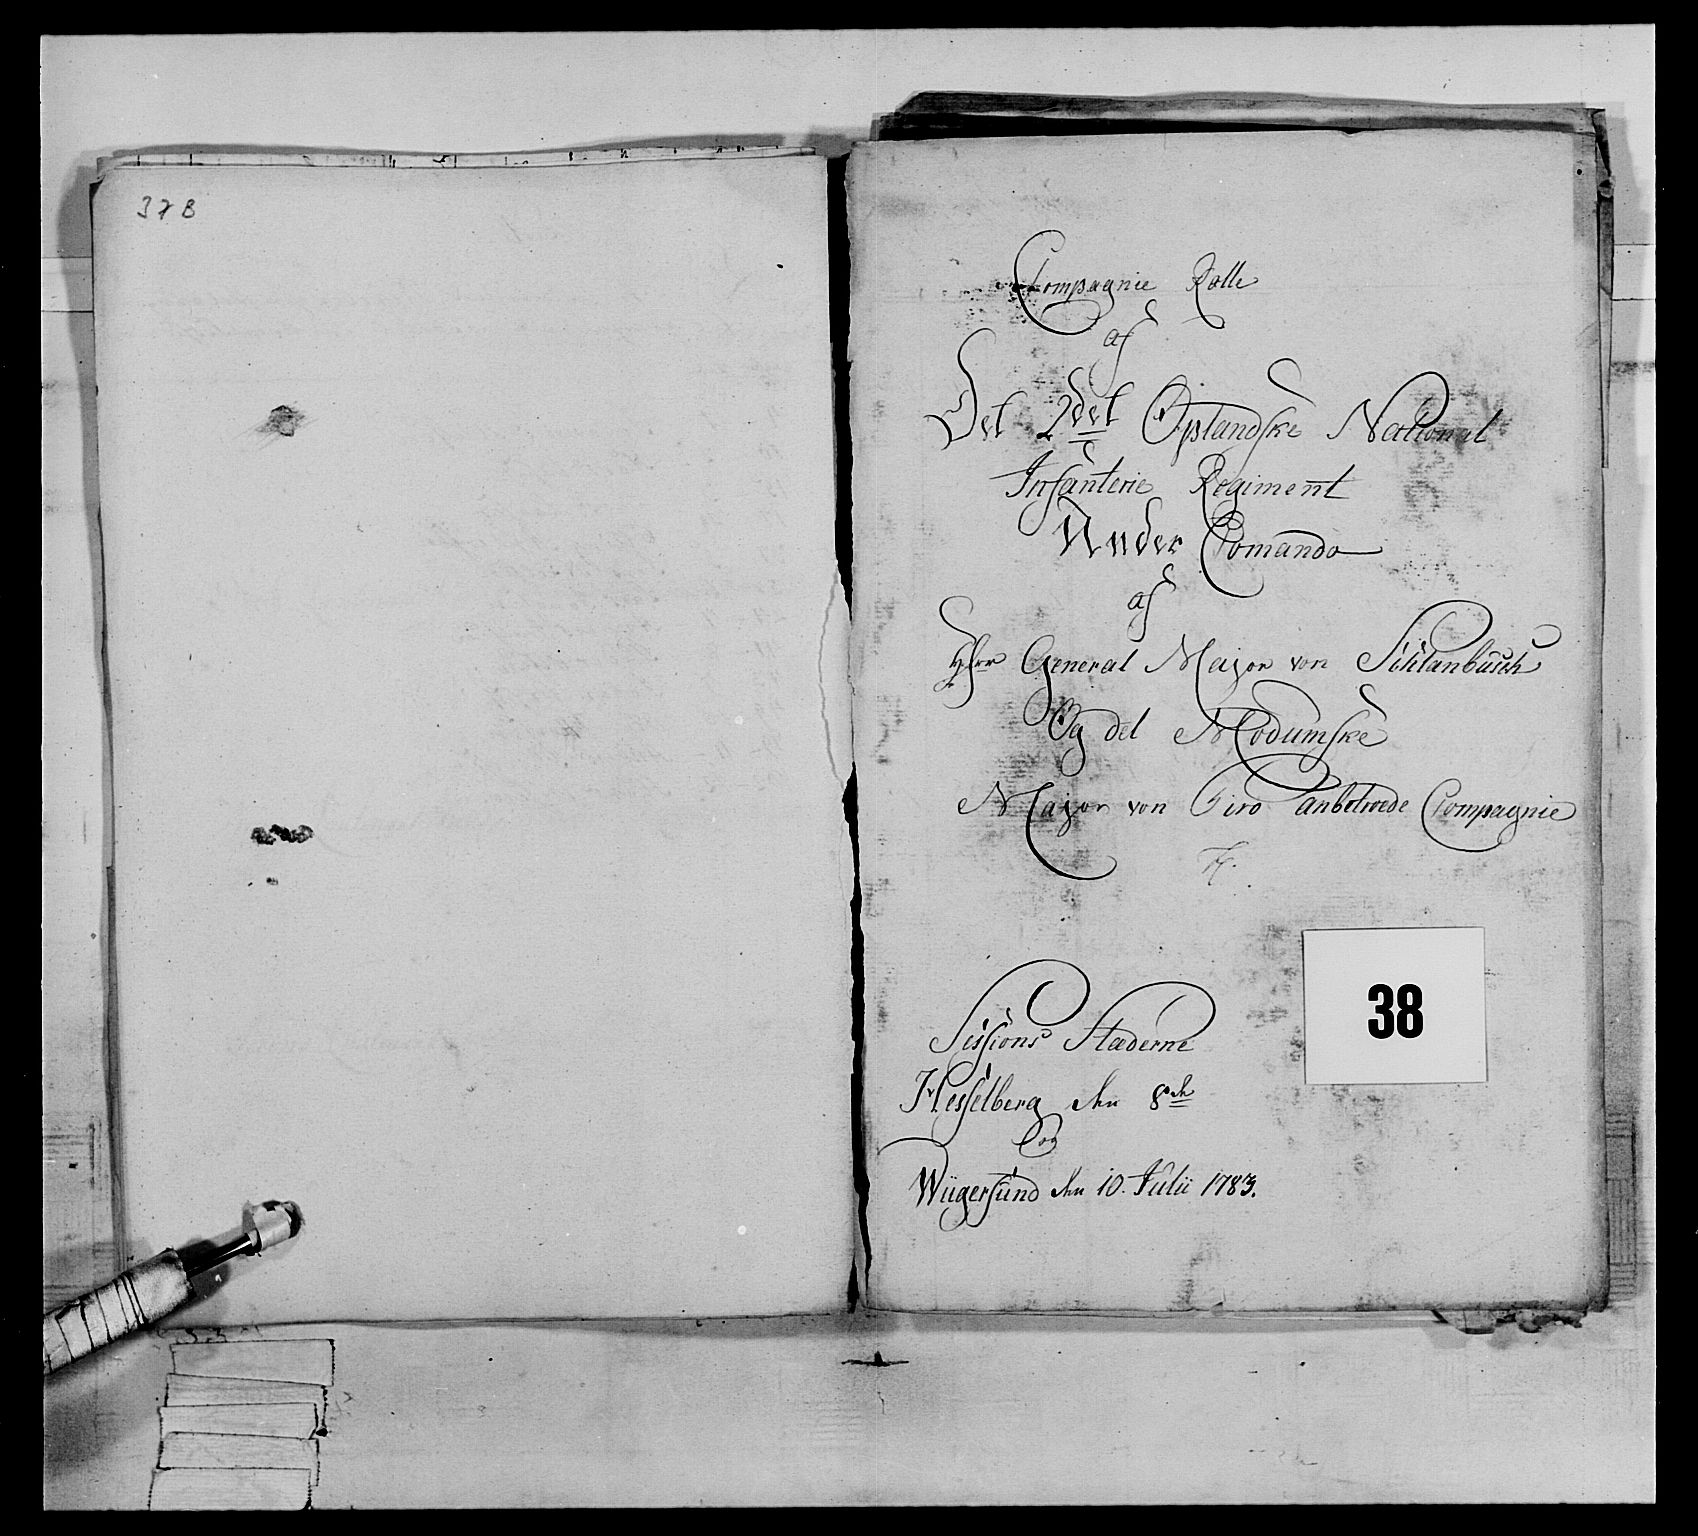 37 B
Compagnie Rolle
af
Det 2det Oplandske National
Infanterie Regiment
Under Comando
af
Herr General Major von Schlanbusch
Og det Modumske
Major von Giro anbetroede Compagnie
38
Sessions Stæderne
Hesselberg den 8de
og
Wiigersund den 10. Julii 1783.